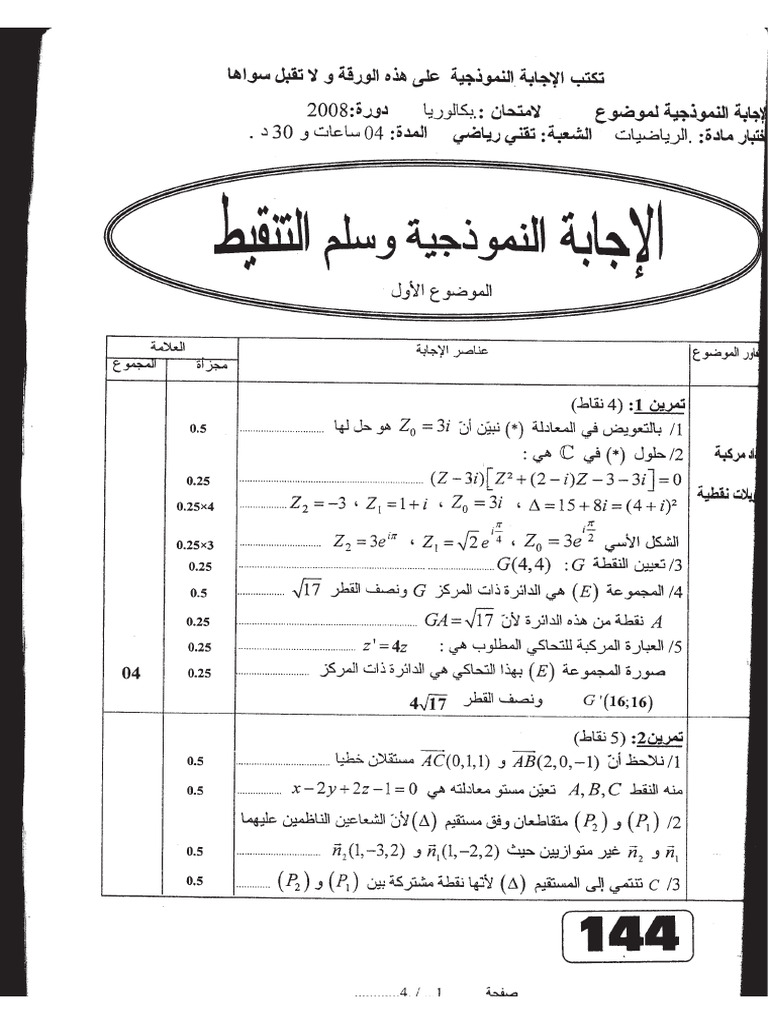 تكتب الإجابة النموذجية على هذه الورقة و لا تقبل سواها
لإجابة النموذجية لموضوع لامتحان :.بكالوريا دورة:2008
ختبار مادة: .الرياضيات الشعبة: تقني رياضي المدة: 04 ساعات و 30 د .
الإجابة النموذجية وسلم التنقيط
الموضوع الأول
اور الموضوع عناصر الإجابة العلامة
مجزأة المجموع
تمرين 1: (4 نقاط)
1/ بالتعويض في المعادلة (*) نبيّن أنّ Z₀ = 3i هو حل لها .......................... 0.5
اد مركبة
2/ حلول (*) في ℂ هي :
(Z − 3i)[Z² + (2 − i)Z − 3 − 3i] = 0 .......................... 0.25
يلات نقطية
Z₂ = −3 ، Z₁ = 1 + i ، Z₀ = 3i ، Δ = 15 + 8i = (4 + i)² 0.25×4
الشكل الأسي Z₀ = 3e^{iπ/2} ، Z₁ = √2 e^{iπ/4} ، Z₂ = 3e^{iπ} .......................... 0.25×3
3/ تعيين النقطة G : G(4,4) .......................... 0.25
4/ المجموعة (E) هي الدائرة ذات المركز G ونصف القطر √17 .......... 0.5
A نقطة من هذه الدائرة لأنّ GA = √17 .......................... 0.25
5/ العبارة المركبة للتحاكي المطلوب هي : z' = 4z .......................... 0.25
صورة المجموعة (E) بهذا التحاكي هي الدائرة ذات المركز .......... 0.25 04
G'(16;16) ونصف القطر 4√17
تمرين2: (5 نقاط)
1/ نلاحظ أنّ AB(2,0,−1) و AC(0,1,1) مستقلان خطيا .......................... 0.5
منه النقط A, B, C تعيّن مستو معادلته هي x − 2y + 2z − 1 = 0 .......... 0.5
2/ (P₁) و (P₂) متقاطعان وفق مستقيم (Δ) لأنّ الشعاعين الناظمين عليهما
n₁ و n₂ غير متوازيين حيث n₁(1,−2,2) و n₂(1,−3,2) .......................... 0.5
3/ C تنتمي إلى المستقيم (Δ) لأنها نقطة مشتركة بين (P₁) و (P₂) .......... 0.5
144
صفحة 1.. /. 4............